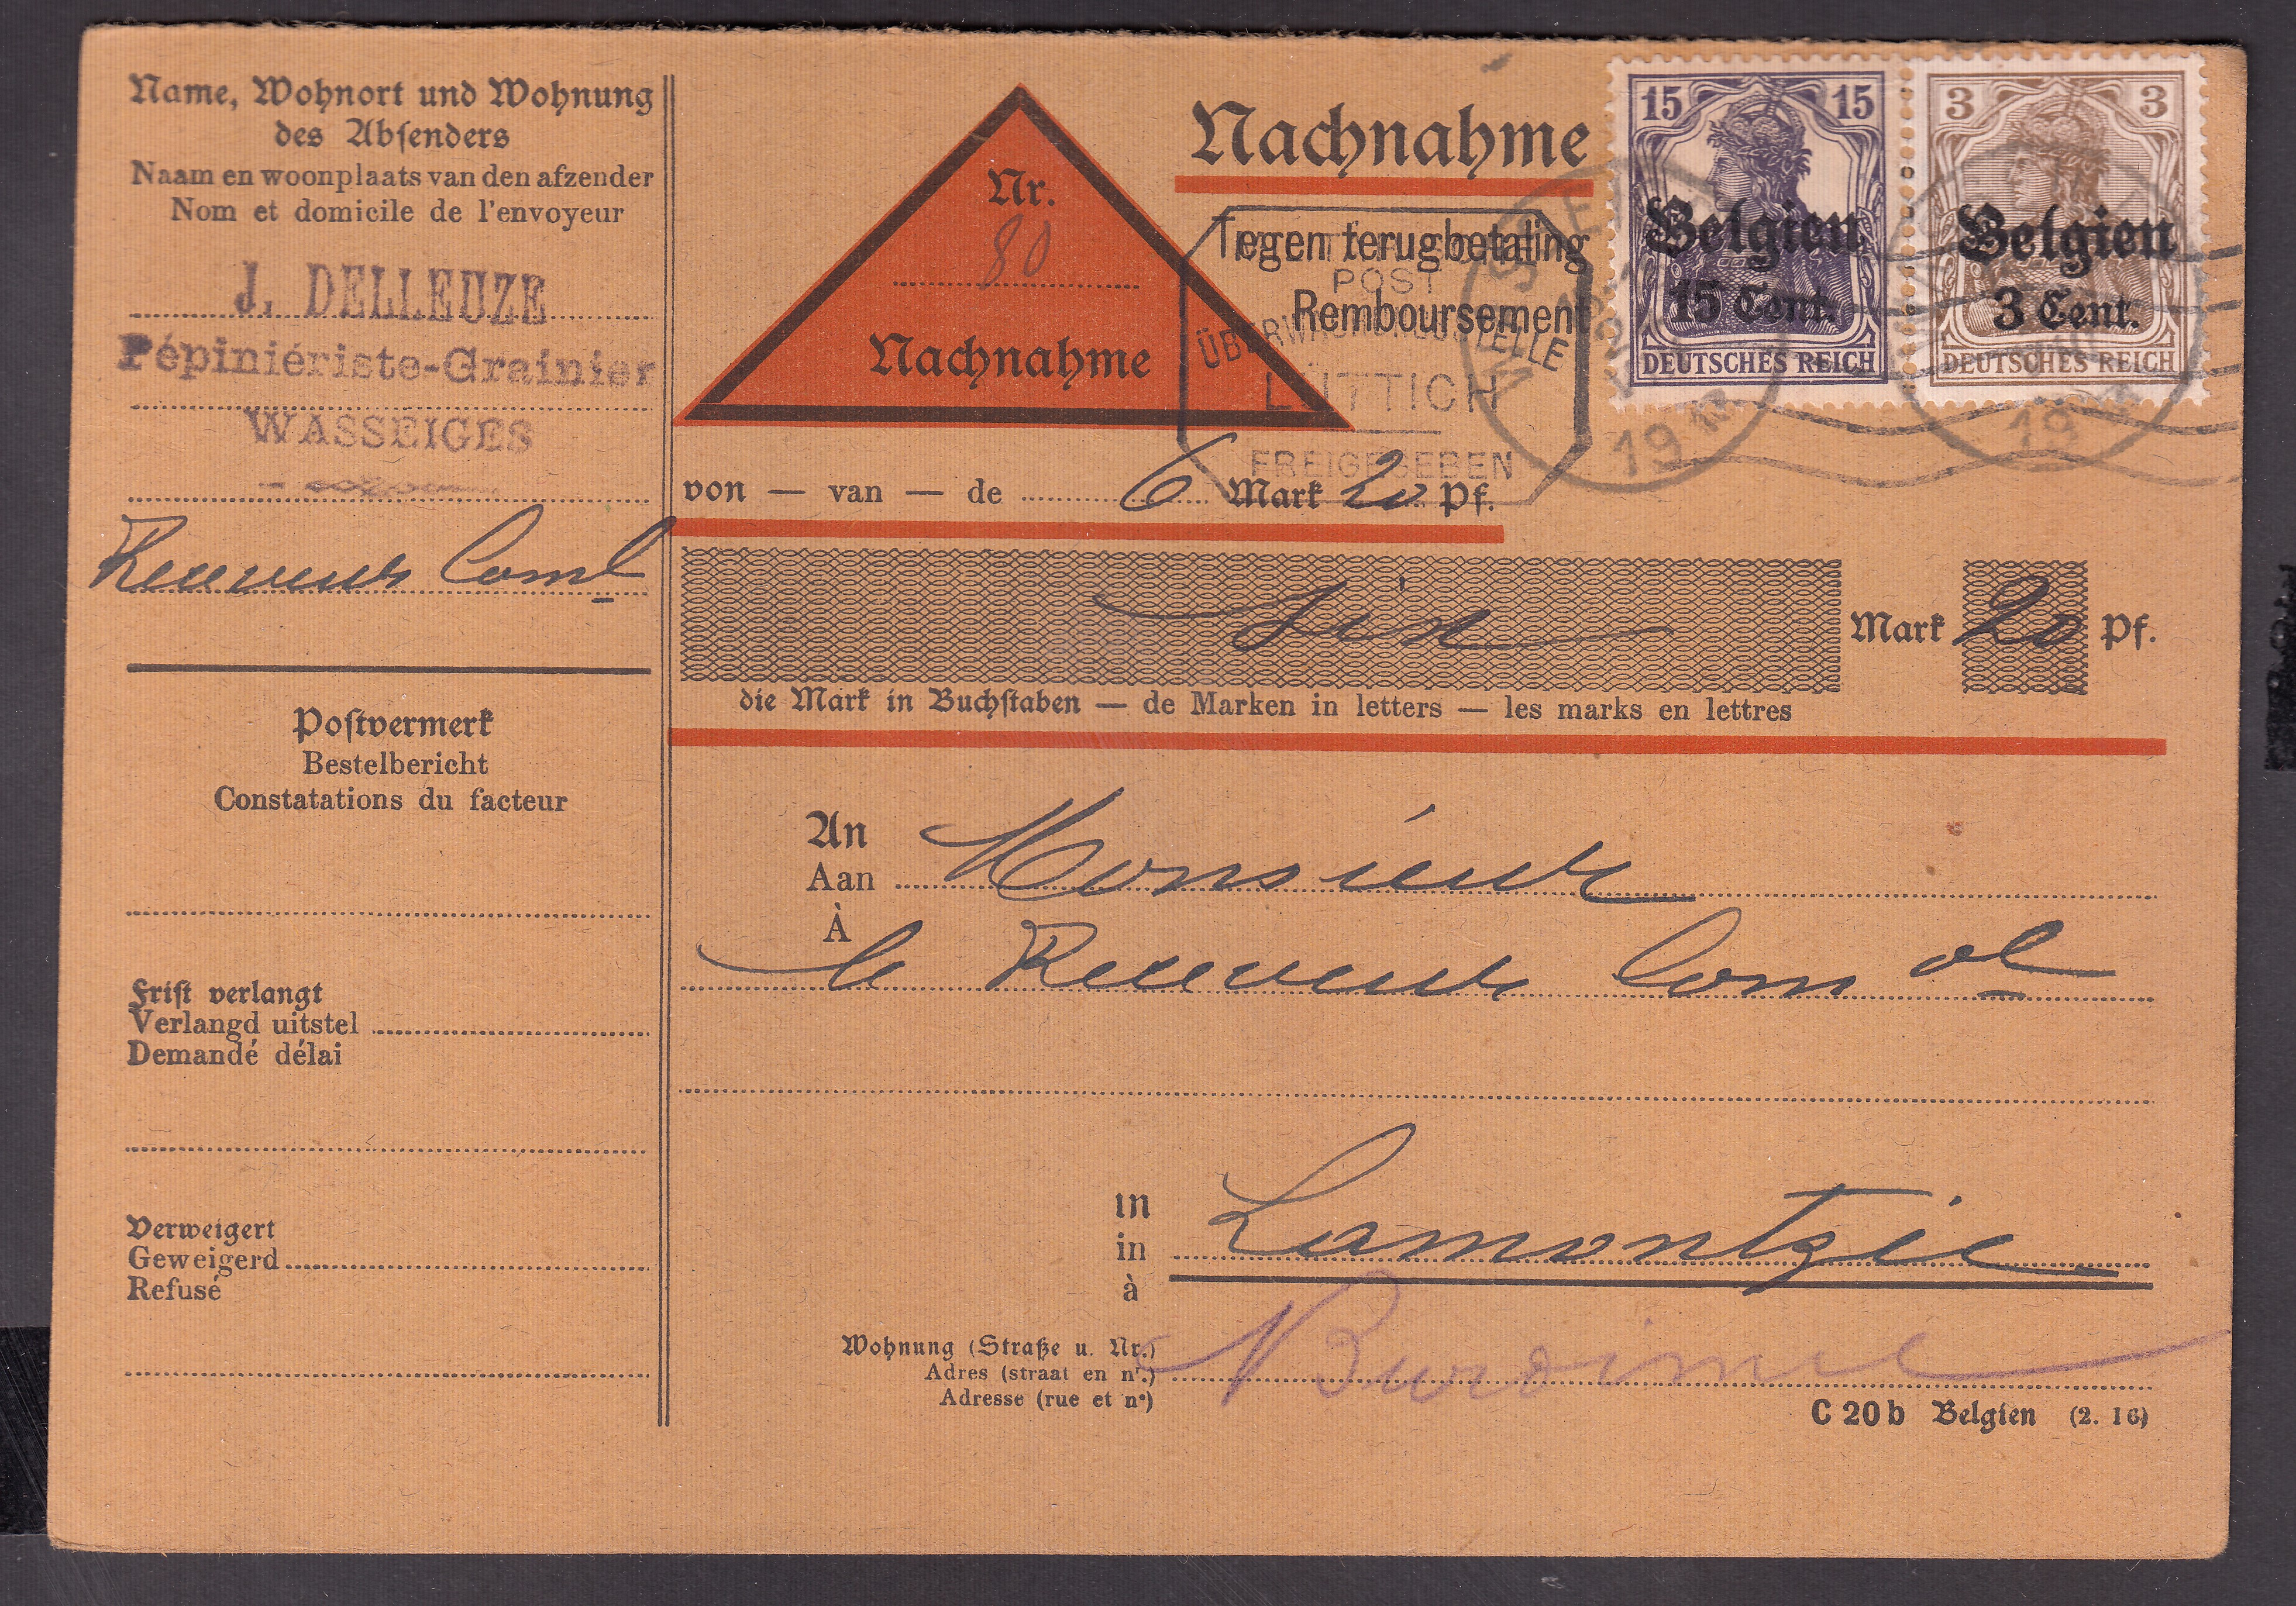 Name, Wohnort und Wohnung
des Absenders
Naam en woonplaats van den afzender
Nom et domicile de l'envoyeur
J. DELLEUZE
Pépiniériste-Grainier
WASSEIGES
Receveur Coml
Postvermerk
Bestelbericht
Constatations du facteur
Frist verlangt
Verlangd uitstel
Demandé délai
Verweigert
Geweigerd
Refusé
Nr.
80
Nachnahme
Nachnahme
Tegen terugbetaling
Remboursement
POST
ÜBERWACHUNGSSTELLE
LÜTTICH
FREIGEGEBEN
15 15
Belgien
15 Cent.
DEUTSCHES REICH
3 3
Belgien
3 Cent.
DEUTSCHES REICH
von — van — de 6 Mark 20 Pf.
six Mark 20 Pf.
die Mark in Buchstaben — de Marken in letters — les marks en lettres
An
Aan Monsieur
À
le Receveur Com al
in
in Lamontzée
à
Wohnung (Straße u. Nr.)
Adres (straat en nr.)
Adresse (rue et n°)
Burdinne
C 20 b Belgien (2. 16)